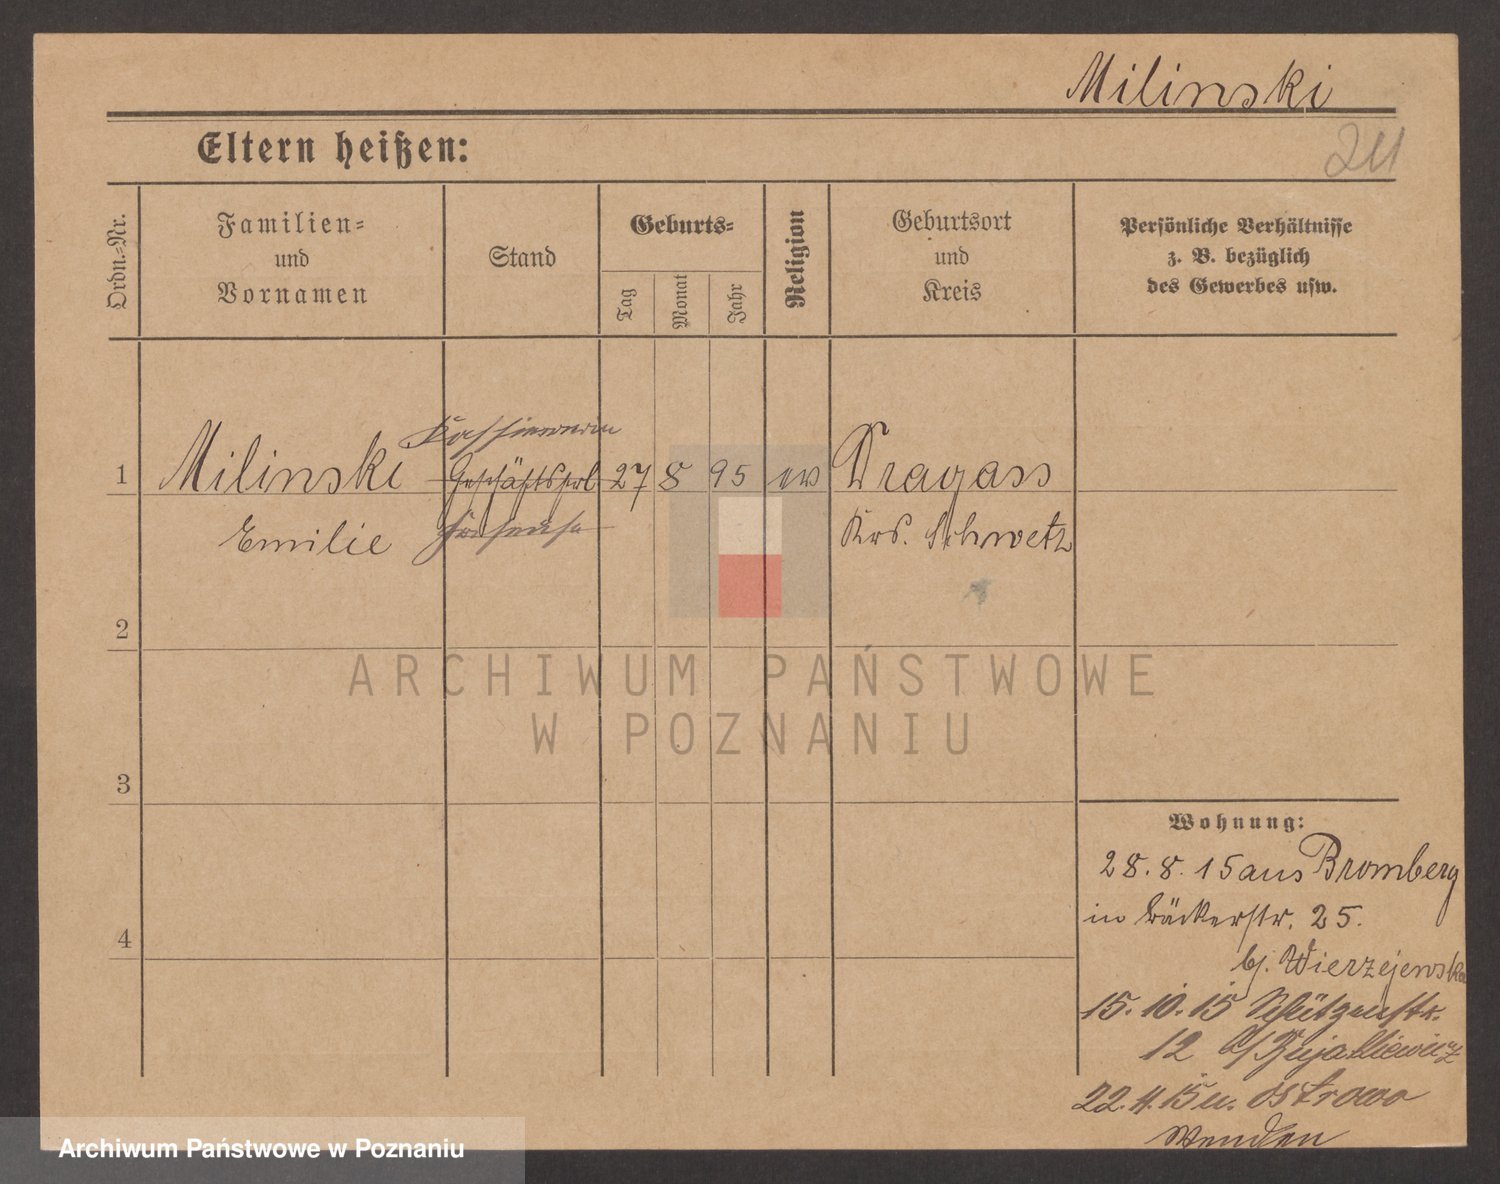 Milinski
Eltern heißen:
Ordn.-Nr.
Familien-
und
Vornamen
Stand
Geburts-
Tag
Monat
Jahr
Religion
Geburtsort
und
Kreis
Persönliche Verhältnisse
z. B. bezüglich
des Gewerbes usw.
Kassiererin
1 Milinski 27 8 95 ev Dragass
Emilie Krs. Schwetz
2
ARCHIWUM PAŃSTWOWE
W POZNANIU
3
Wohnung:
28. 8. 15 aus Bromberg
in Bäckerstr. 25.
4
bj. Wierzejewska
15. 10. 15 Schützenstr.
12
22. 11. 15 u. Ostrowo
Wenden
Archiwum Państwowe w Poznaniu